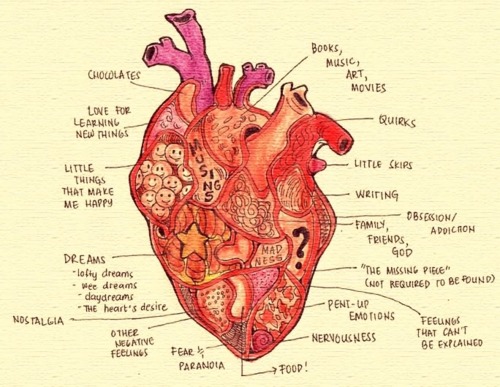 CHOCOLATES
LOVE FOR
LEARNING
NEW THINGS
LITTLE
THINGS
THAT MAKE
ME HAPPY
DREAMS
- lofty dreams
- wee dreams
- daydreams
- the heart's desire
NOSTALGIA
OTHER
NEGATIVE
FEELINGS
FEAR &
PARANOIA
MUSINGS
MAD
NESS
?
BOOKS,
MUSIC,
ART,
MOVIES
QUIRKS
LITTLE SKIPS
WRITING
OBSESSION/
ADDICTION
FAMILY,
FRIENDS,
GOD
"THE MISSING PIECE"
(NOT REQUIRED TO BE FOUND)
PENT-UP
EMOTIONS
FEELINGS
THAT CAN'T
BE EXPLAINED
NERVOUSNESS
FOOD!